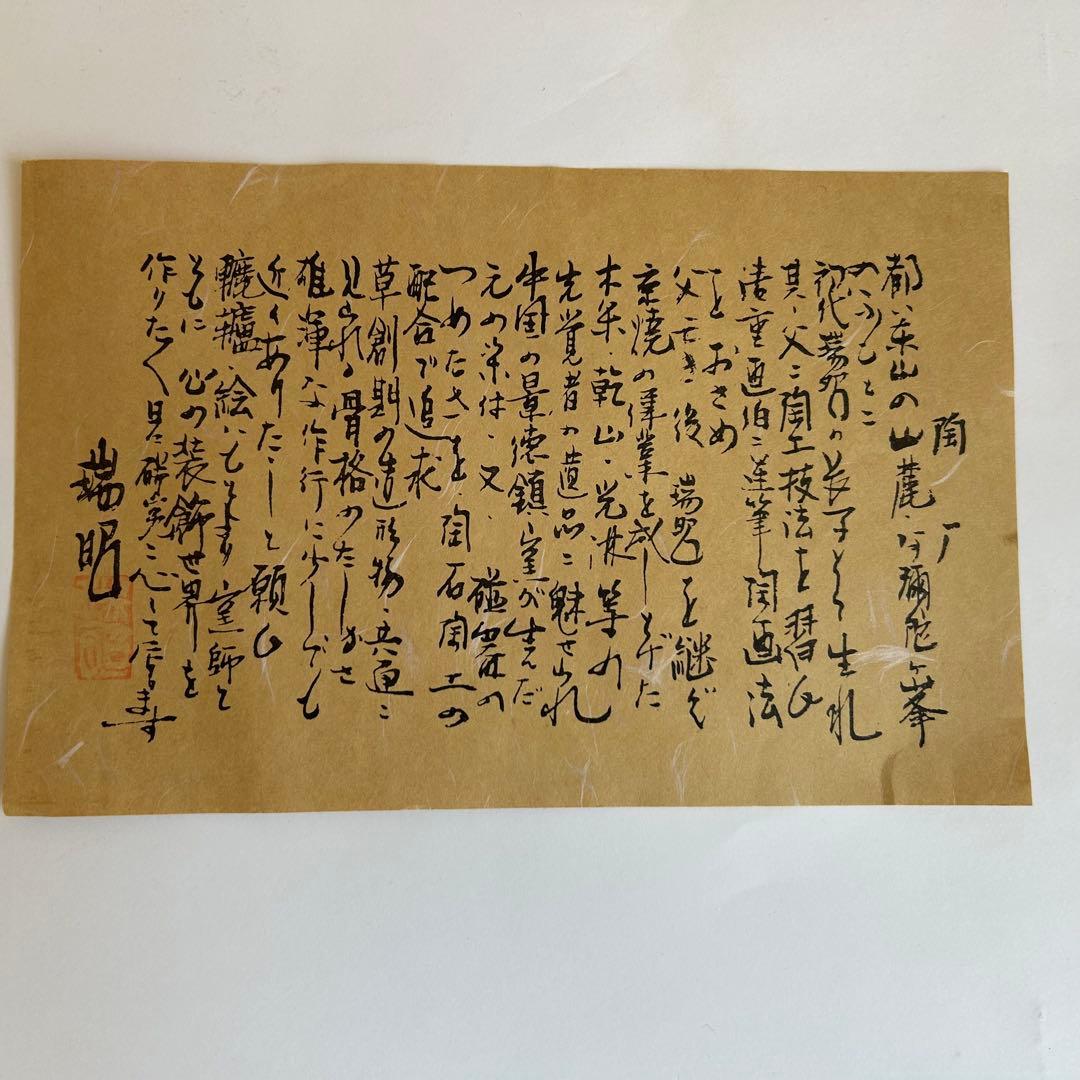 陶 歴
都 東山の山麓 阿彌陀ヶ峯
のふもとに
初代瑞明の長子として生れ
其の父に陶工技法を習ひ
清重画伯に運筆 陶画法
をおさめ
父亡き後 瑞明を継ぎ
京焼の修業を成しとげた
木米・乾山・光淋等の
先覚者の遺品に魅せられ
中国の景徳鎮窯が生んだ
元の染付・又・磁器の
つめたさを・陶石陶土の
配合で追求
草創期の造形物に共通に
見られる骨格のたしかさ
雄渾な作行に少しでも
近くありたしと願ひ
轆轤・絵いともより 窯師と
ともに 公の装飾世界を
作りたく日々研究に心して居ります
瑞明